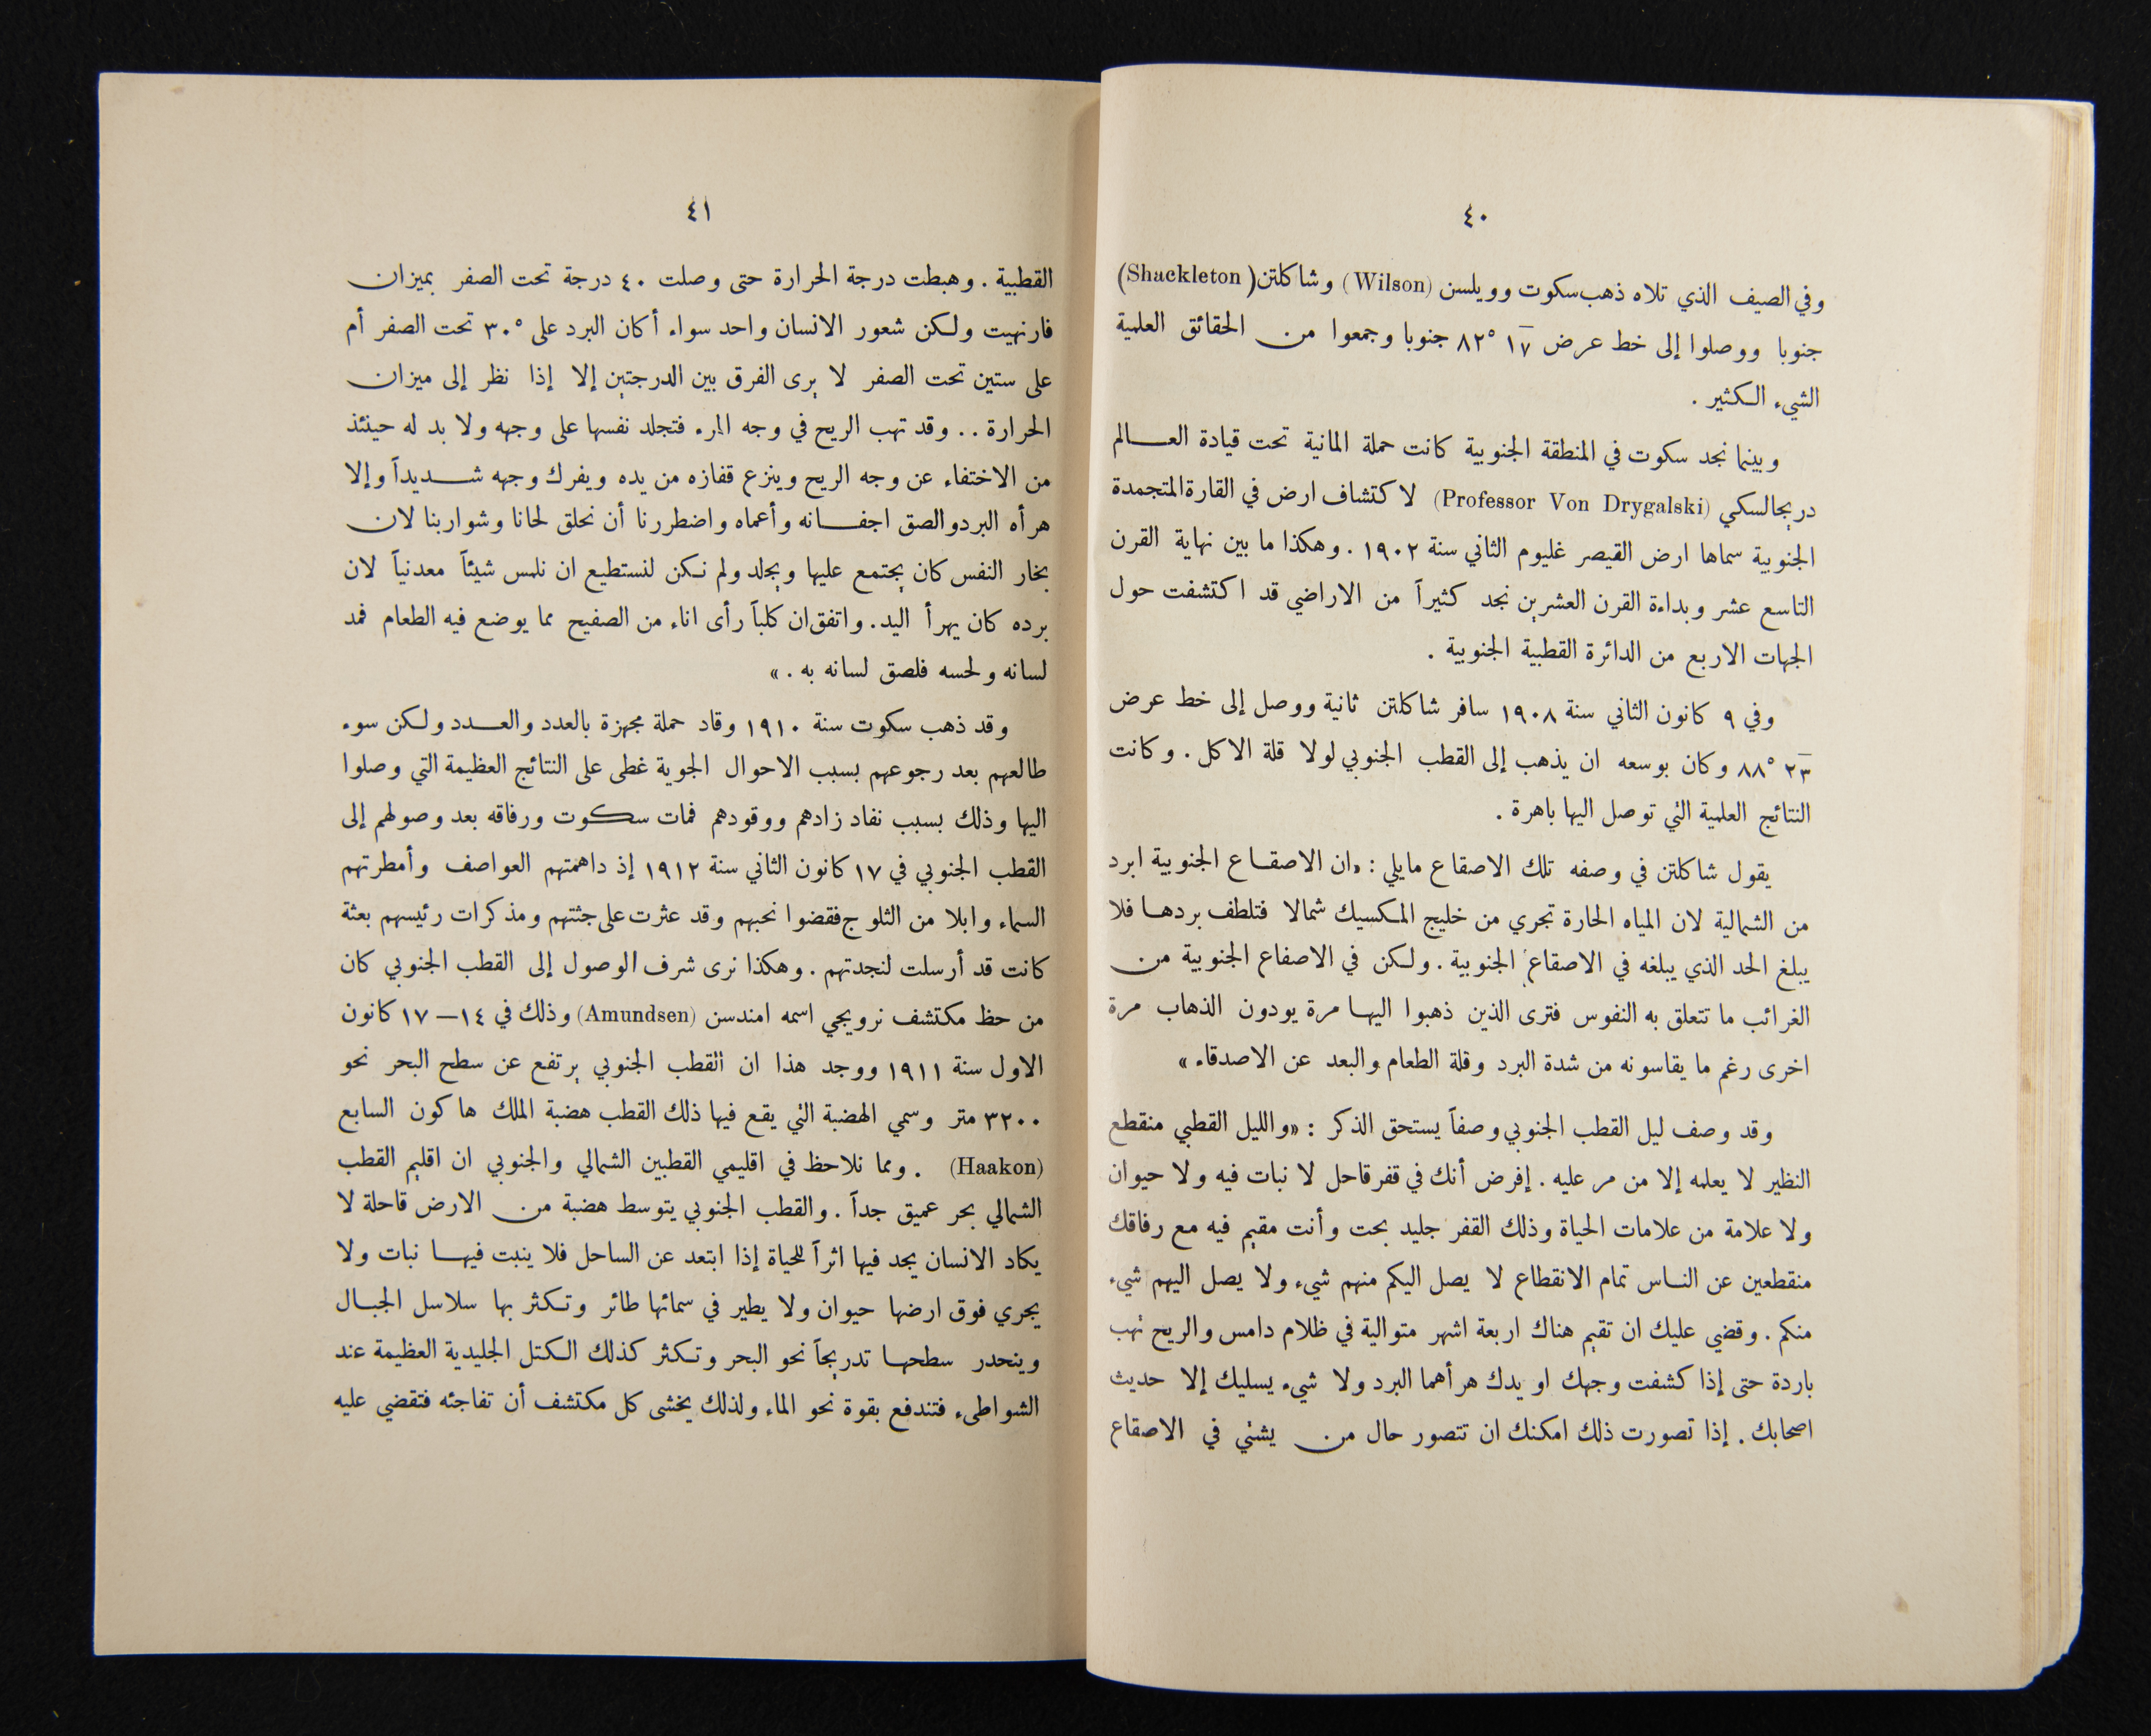 ٤٠
وفي الصيف الذي تلاه ذهب سكوت وويلسن (Wilson) وشاكلتن (Shackleton)
جنوبا ووصلوا إلى خط عرض ١٧ ٨٢° جنوبا وجمعوا من الحقائق العلمية
الشيء الكثير .
وبينما نجد سكوت في المنطقة الجنوبية كانت حملة المانية تحت قيادة العالم
دريجالسكي (Professor Von Drygalski) لاكتشاف ارض في القارة المتجمدة
الجنوبية سماها ارض القيصر غليوم الثاني سنة ١٩٠٢ . وهكذا ما بين نهاية القرن
التاسع عشر وبداءة القرن العشرين نجد كثيراً من الاراضي قد اكتشفت حول
الجهات الاربع من الدائرة القطبية الجنوبية .
وفي ٩ كانون الثاني سنة ١٩٠٨ سافر شاكلتن ثانية ووصل إلى خط عرض
٢٣ ٨٨° وكان بوسعه ان يذهب إلى القطب الجنوبي لولا قلة الاكل . وكانت
النتائج العلمية التي توصل اليها باهرة .
يقول شاكلتن في وصفه تلك الاصقاع مايلي : «ان الاصقاع الجنوبية ابرد
من الشمالية لان المياه الحارة تجري من خليج المكسيك شمالا فتلطف بردها فلا
يبلغ الحد الذي يبلغه في الاصقاع الجنوبية . ولكن في الاصقاع الجنوبية من
الغرائب ما تتعلق به النفوس فترى الذين ذهبوا اليها مرة يودون الذهاب مرة
اخرى رغم ما يقاسونه من شدة البرد وقلة الطعام والبعد عن الاصدقاء »
وقد وصف ليل القطب الجنوبي وصفاً يستحق الذكر : «والليل القطبي منقطع
النظير لا يعلمه إلا من مر عليه . إفرض أنك في قفر قاحل لا نبات فيه ولا حيوان
ولا علامة من علامات الحياة وذلك القفر جليد بحت وأنت مقيم فيه مع رفاقك
منقطعين عن الناس تمام الانقطاع لا يصل اليكم منهم شيء ولا يصل اليهم شيء
منكم . وقضي عليك ان تقيم هناك اربعة اشهر متوالية في ظلام دامس والريح تهب
باردة حتى إذا كشفت وجهك او يدك هرأهما البرد ولا شيء يسليك إلا حديث
اصحابك . إذا تصورت ذلك امكنك ان تتصور حال من يشتي في الاصقاع
٤١
القطبية . وهبطت درجة الحرارة حتى وصلت ٤٠ درجة تحت الصفر بميزان
فارنهيت ولكن شعور الانسان واحد سواء أكان البرد على ٣٠° تحت الصفر أم
على ستين تحت الصفر لا يرى الفرق بين الدرجتين إلا إذا نظر إلى ميزان
الحرارة .. وقد تهب الريح في وجه المرء فتجلد نفسها على وجهه ولا بد له حينئذ
من الاختفاء عن وجه الريح وينزع قفازه من يده ويفرك وجهه شديداً وإلا
هرأه البرد والصق اجفانه وأعماه واضطررنا أن نحلق لحانا وشواربنا لان
بخار النفس كان يجتمع عليها ويجلد ولم نكن لنستطيع ان نلمس شيئاً معدنياً لان
برده كان يهرأ اليد . واتفق ان كلباً رأى اناء من الصفيح مما يوضع فيه الطعام فمد
لسانه ولحسه فلصق لسانه به . »
وقد ذهب سكوت سنة ١٩١٠ وقاد حملة مجهزة بالعدد والعدد ولكن سوء
طالعهم بعد رجوعهم بسبب الاحوال الجوية غطى على النتائج العظيمة التي وصلوا
اليها وذلك بسبب نفاد زادهم ووقودهم فمات سكوت ورفاقه بعد وصولهم إلى
القطب الجنوبي في ١٧ كانون الثاني سنة ١٩١٢ إذ داهمتهم العواصف وأمطرتهم
السماء وابلا من الثلوج فقضوا نحبهم وقد عثرت على جثتهم ومذكرات رئيسهم بعثة
كانت قد أرسلت لنجدتهم . وهكذا نرى شرف الوصول إلى القطب الجنوبي كان
من حظ مكتشف نرويجي اسمه امندسن (Amundsen) وذلك في ١٤ – ١٧ كانون
الاول سنة ١٩١١ ووجد هذا ان القطب الجنوبي يرتفع عن سطح البحر نحو
٣٢٠٠ متر وسمي الهضبة التي يقع فيها ذلك القطب هضبة الملك هاكون السابع
(Haakon) . ومما نلاحظ في اقليمي القطبين الشمالي والجنوبي ان اقليم القطب
الشمالي بحر عميق جداً . والقطب الجنوبي يتوسط هضبة من الارض قاحلة لا
يكاد الانسان يجد فيها اثراً للحياة إذا ابتعد عن الساحل فلا ينبت فيها نبات ولا
يجري فوق ارضها حيوان ولا يطير في سمائها طائر وتكثر بها سلاسل الجبال
وينحدر سطحها تدريجاً نحو البحر وتكثر كذلك الكتل الجليدية العظيمة عند
الشواطىء فتندفع بقوة نحو الماء ولذلك يخشى كل مكتشف أن تفاجئه فتقضي عليه